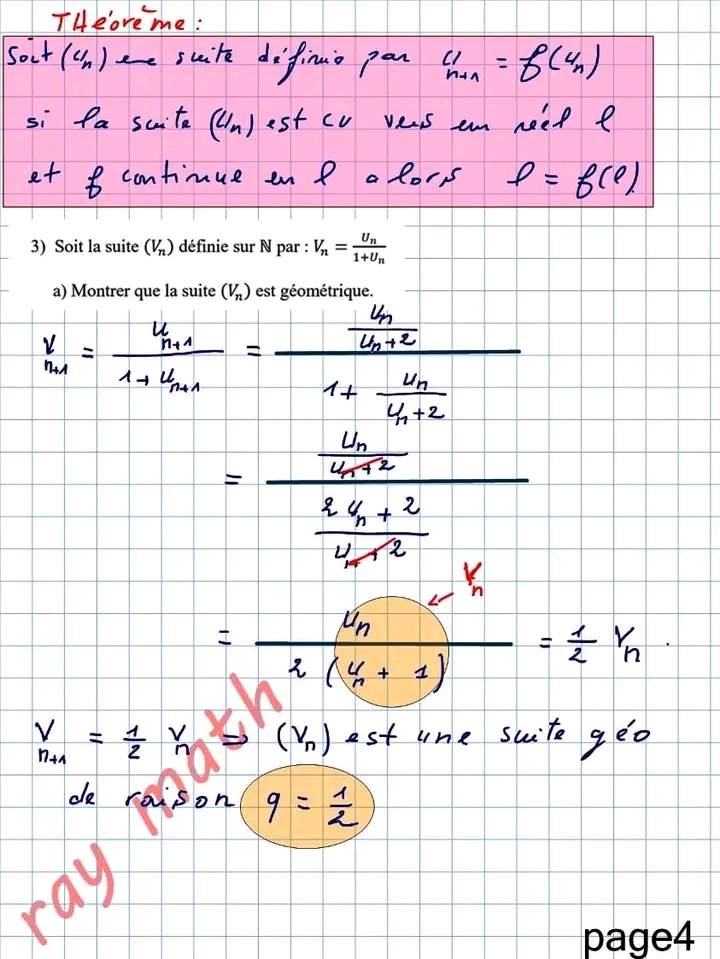 THéorème :
Soit (Uₙ) une suite définie par Uₙ₊₁ = f(Uₙ)
si la suite (Uₙ) est cv vers un réel l
et f continue en l alors l = f(l)
3) Soit la suite (Vₙ) définie sur ℕ par : Vₙ = Uₙ/(1+Uₙ)
a) Montrer que la suite (Vₙ) est géométrique.
Vₙ₊₁ = Uₙ₊₁/(1 + Uₙ₊₁) = (Uₙ/(Uₙ+2))/(1 + Uₙ/(Uₙ+2))
= (Uₙ/(Uₙ+2))/((2Uₙ+2)/(Uₙ+2))
Vₙ
= Uₙ/(2(Uₙ + 1)) = 1/2 Vₙ .
Vₙ₊₁ = 1/2 Vₙ ⇒ (Vₙ) est une suite géo
de raison q = 1/2
ray math
page4